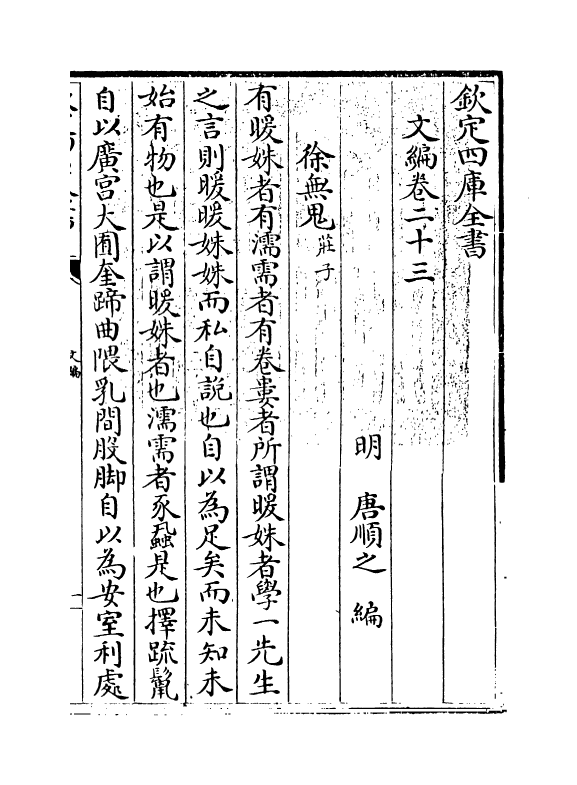 欽定四庫全書
文編卷二十三
明 唐順之 編
徐無鬼 莊子
有暖姝者有濡需者有卷婁者所謂暖姝者學一先生
之言則暖暖姝姝而私自說也自以為足矣而未知未
始有物也是以謂暖姝者也濡需者豕蝨是也擇疏鬣
自以廣宫大囿奎蹄曲隈乳間股脚自以為安室利處
文編